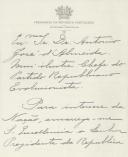 PRESIDENCIA DA REPUBLICA PORTUGUESA
Ex.mo Sr. Dr. Antonio
José d'Almeida
Mui ilustre Chefe do
Partido Republicano
Evolucionista
Para interesse da
Nação, encarrega-me
S. Excellencia o Senhor
Presidente da Republica